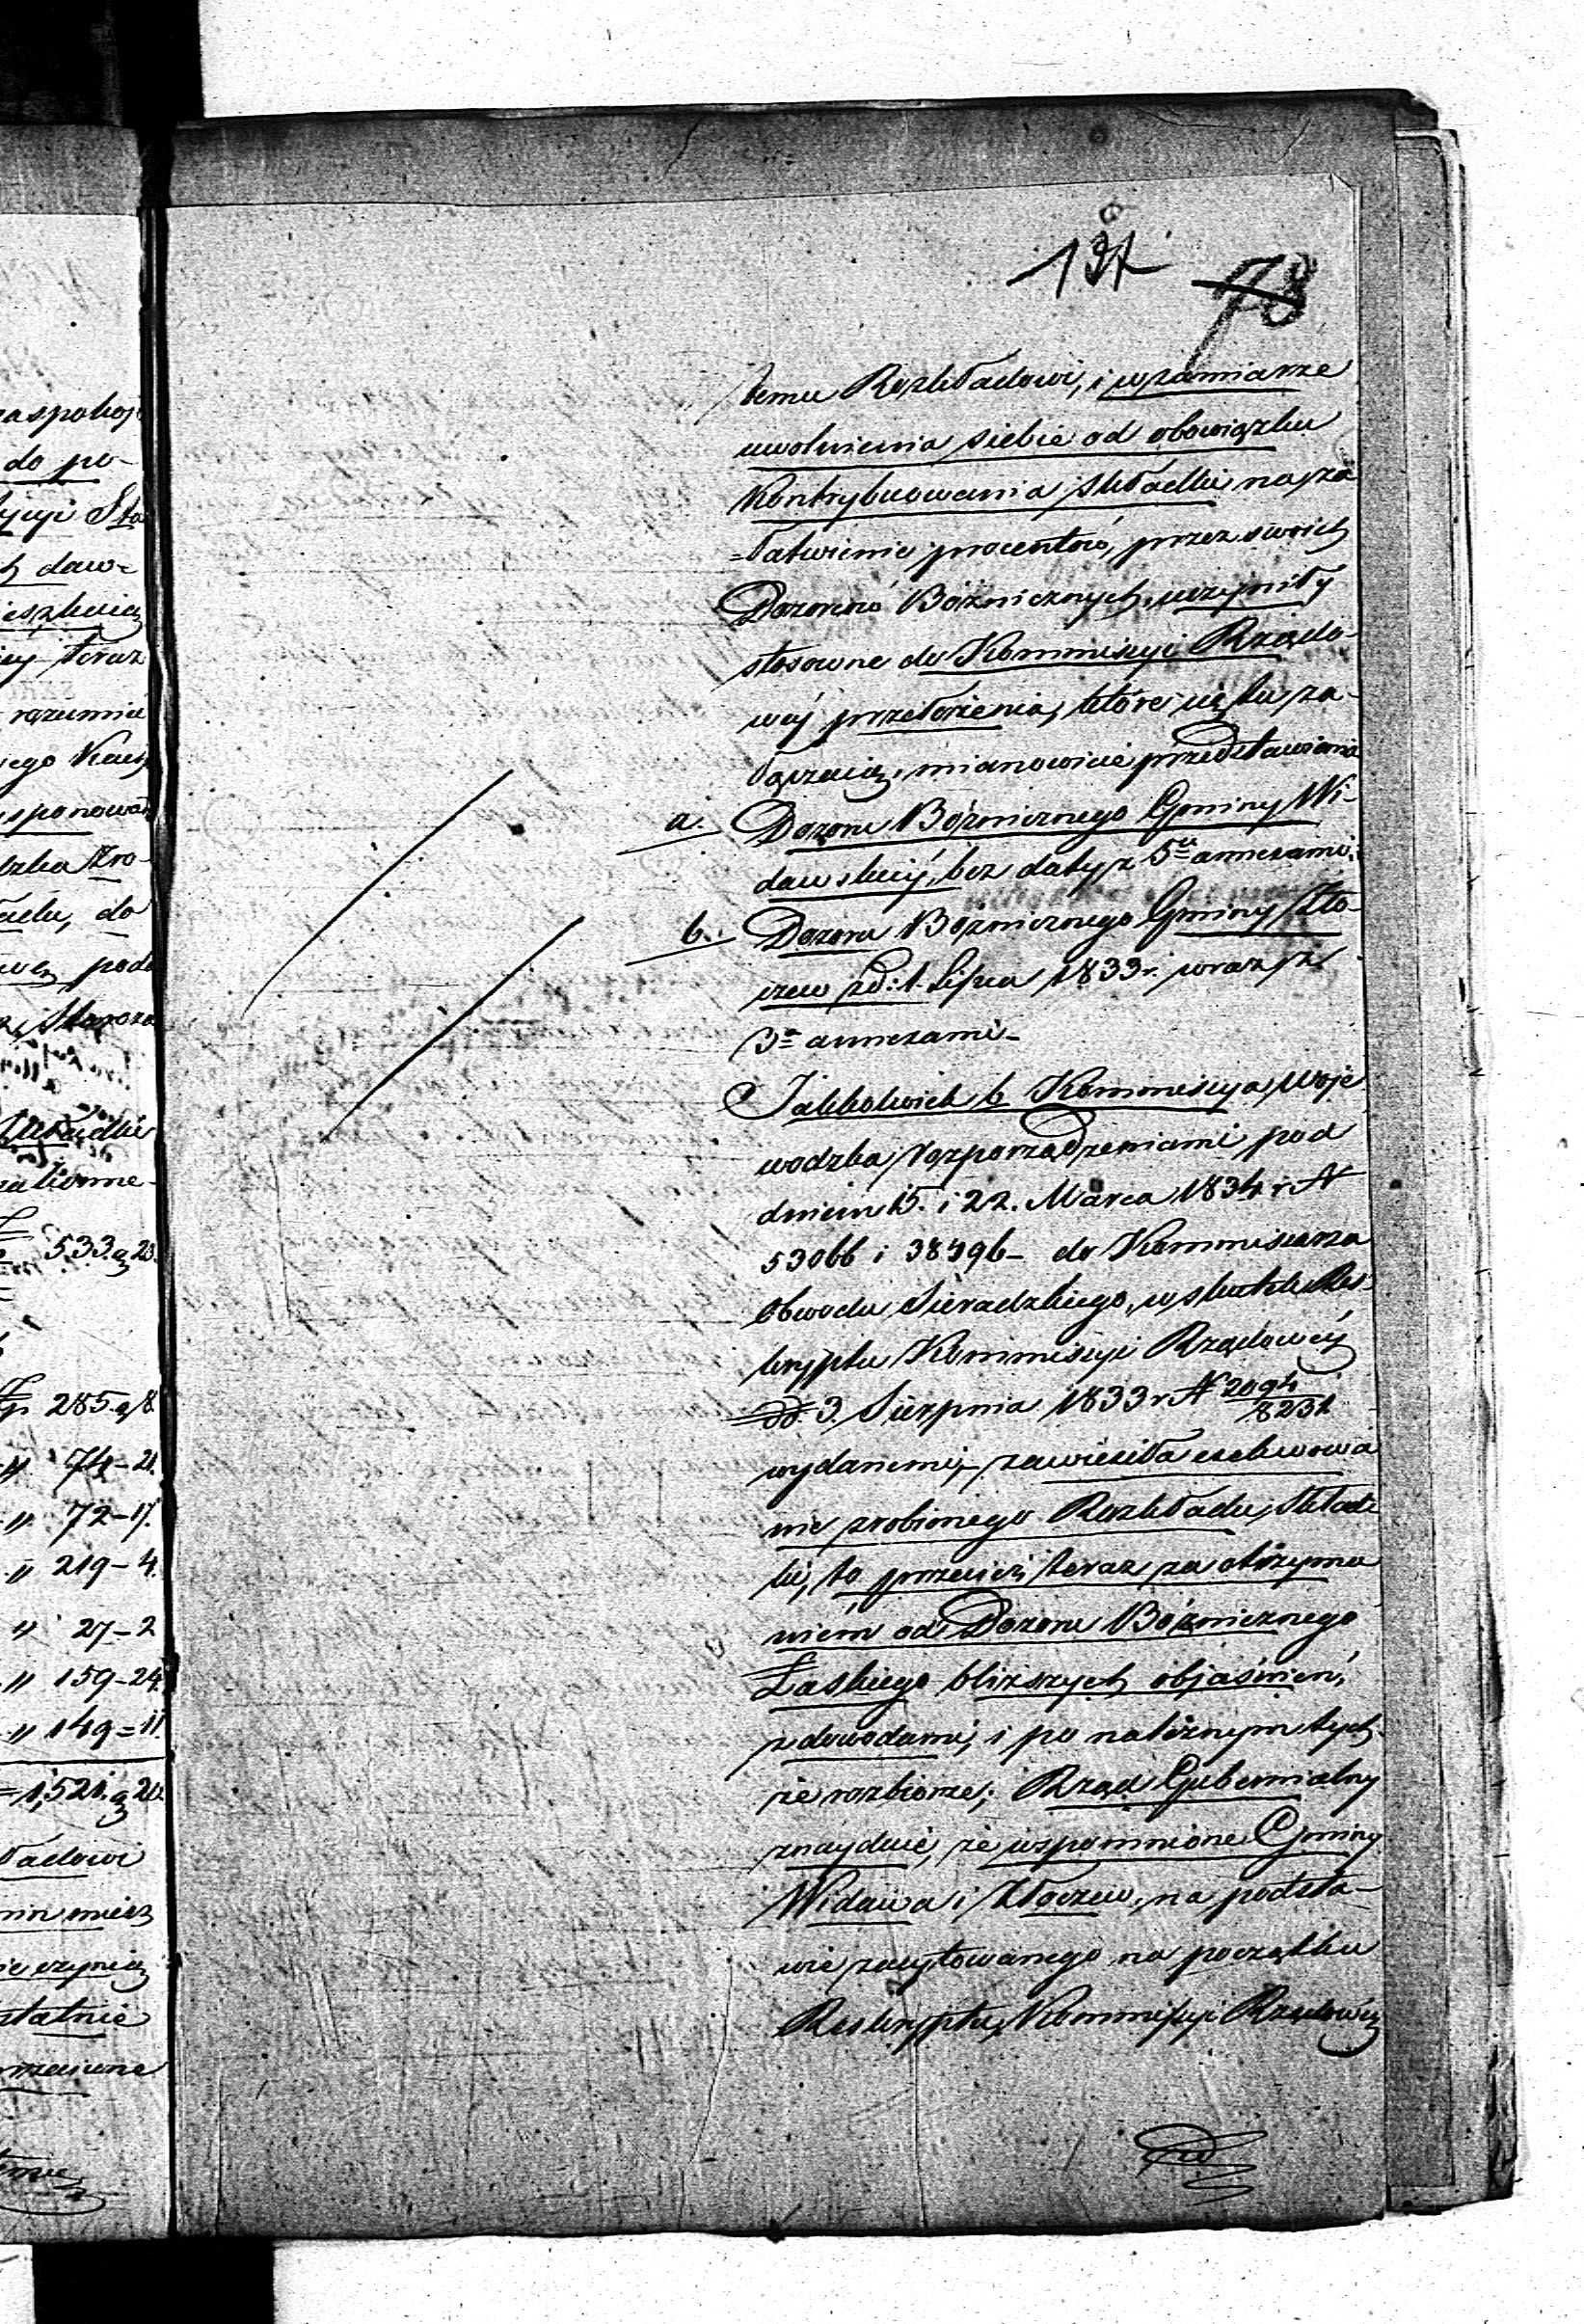 137
78
temu Rozkładowi, i w zamiarze
uwolnienia siebie od obowiązku
Kontrybuowania składki na za
=łatwienie procentów, przez swoich
Dozorców Bóżnicznych, uczyniły
stosowne do Kommissyi Rządo-
wéj przełożenia, które się tu za-
łączaią, mianowicie przedstawienia
a. Dozoru Bóżnicznego Gminy Wi-
dawskiéj, bez daty z 5u annexami;
b. Dozoru Bożnicznego Gminy Zło-
czew z d: 1. Lipca 1833 r. wraz z
3a annexami-
Jakkolwiek b Kommissya Woje
wodzka rozporządzeniami pod
dniem 15. i 22. Marca 1834 r N
53066 i 38496- do Kommissarza
Obwodu Sieradzkiego, w skutek Res-
kryptu Kommissyi Rządowéj
dd. 3. Sierpnia 1833 r N 2094/8231
wydanemi, zawiesiła exekwowa
nie zrobionego Rozkładu, składek
ki, to przecież teraz za otrzyma
niem od Dozoru Bóżnicznego
Łaskiego bliższych objaśnień,
z dowodami, i po należnym tych
że rozbiorze; Rząd Gubernialny
znayduie, że wspomnione Gminy
Widawa i Złoczew, na podsta-
wie zacytowanego na początku
Reskryptu, Kommissyi Rządowéj
zaspokoj
do po-
daw=
teraz
rozumie
do
533. g 20.
285. g 8.
" 74-21.
" 72-17.
" 219-4.
" 27-2
" 159-24.
" 149=11.
=1,521. g 20.